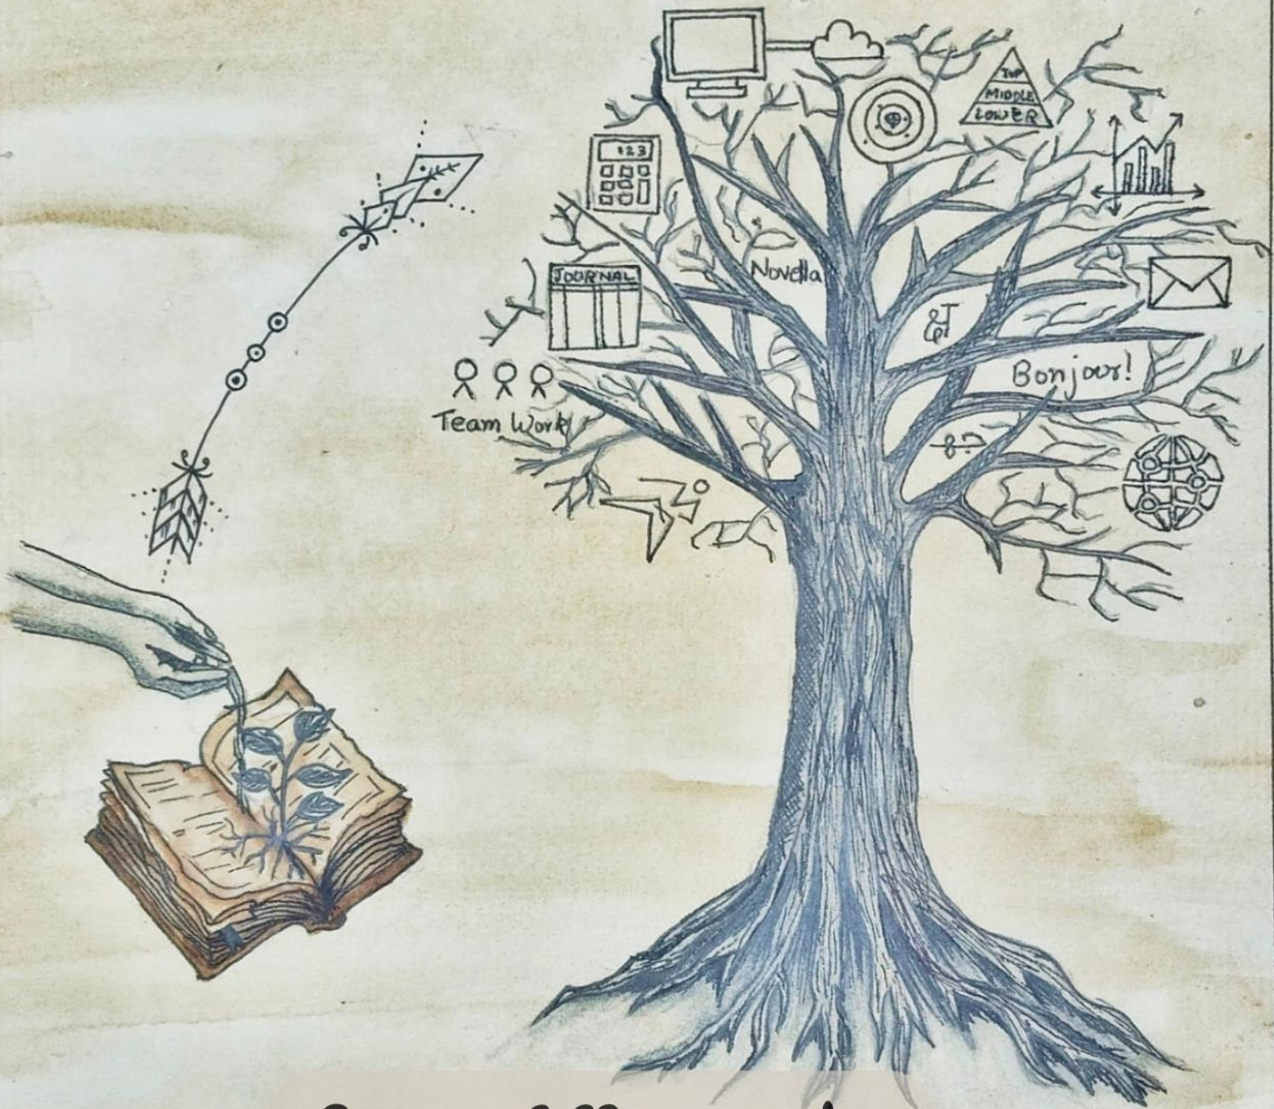 TOP
MIDDLE
LOWER
123
JOURNAL
Novella
Bonjour!
Team Work